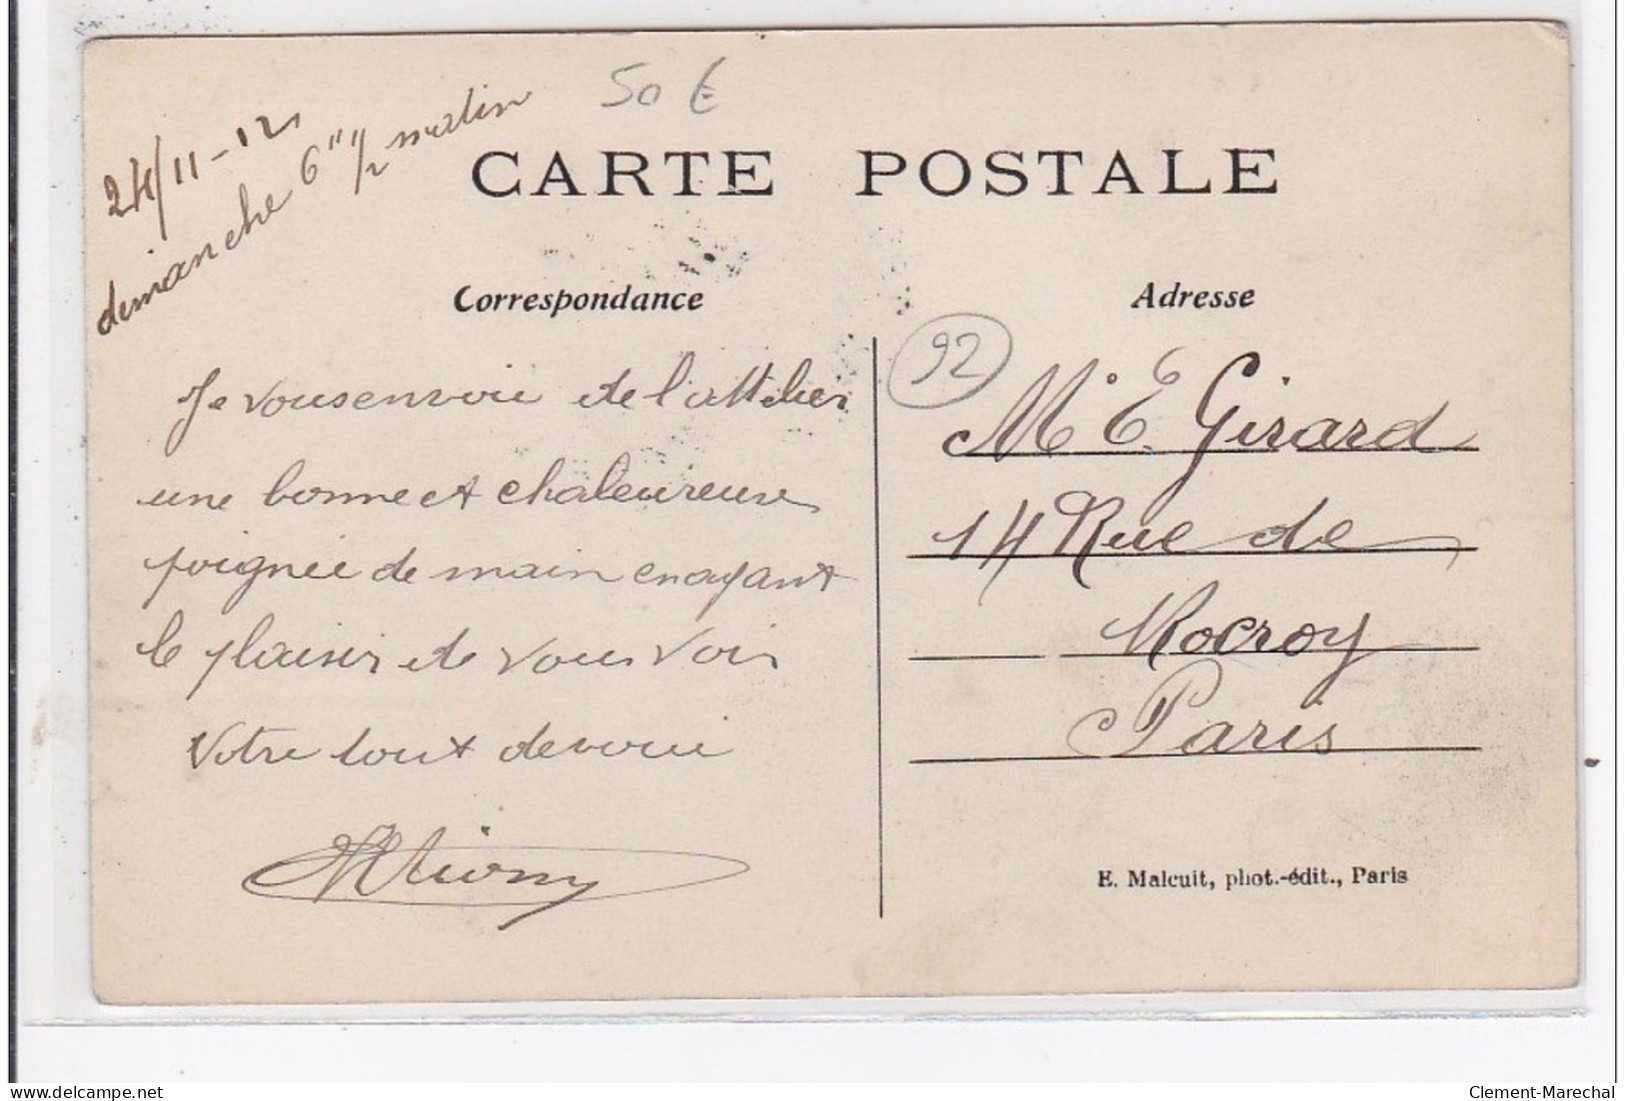 50 €
24/11-12
dimanche 6" 1/2 matin
CARTE POSTALE
Correspondance
Adresse
92
Je vous envoie de l'attelier
une bonne et chaleureuse
poignée de main en ayant
le plaisir de vous voir
Votre tout devoué
Mr E. Girard
14 Rue de
Rocroy
Paris
E. Malcuit, phot.-édit., Paris
delcampe.net
Clement-Marechal